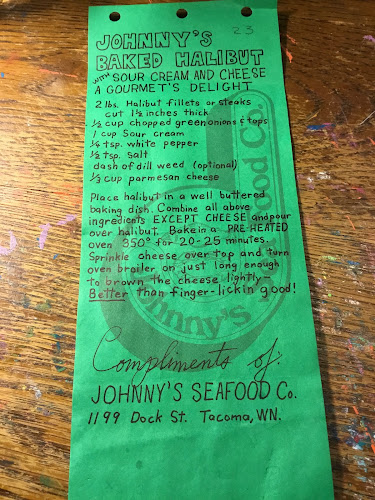 23
JOHNNY'S
BAKED HALIBUT
WITH SOUR CREAM AND CHEESE
A GOURMET'S DELIGHT
2 lbs. Halibut fillets or steaks
cut 1½ inches thick
½ cup chopped green onions & tops
1 cup Sour cream
¼ tsp. white pepper
½ tsp. salt
dash of dill weed (optional)
½ cup parmesan cheese
Place halibut in a well buttered
baking dish. Combine all above
ingredients EXCEPT CHEESE and pour
over halibut. Bake in a PRE HEATED
oven 350° for 20-25 minutes.
Sprinkle cheese over top and turn
oven broiler on just long enough
to brown the cheese lightly-
Better than finger-lickin' good!
Johnny's
Food Co.
Compliments of:
JOHNNY'S SEAFOOD Co.
1199 Dock St. Tacoma, WN.